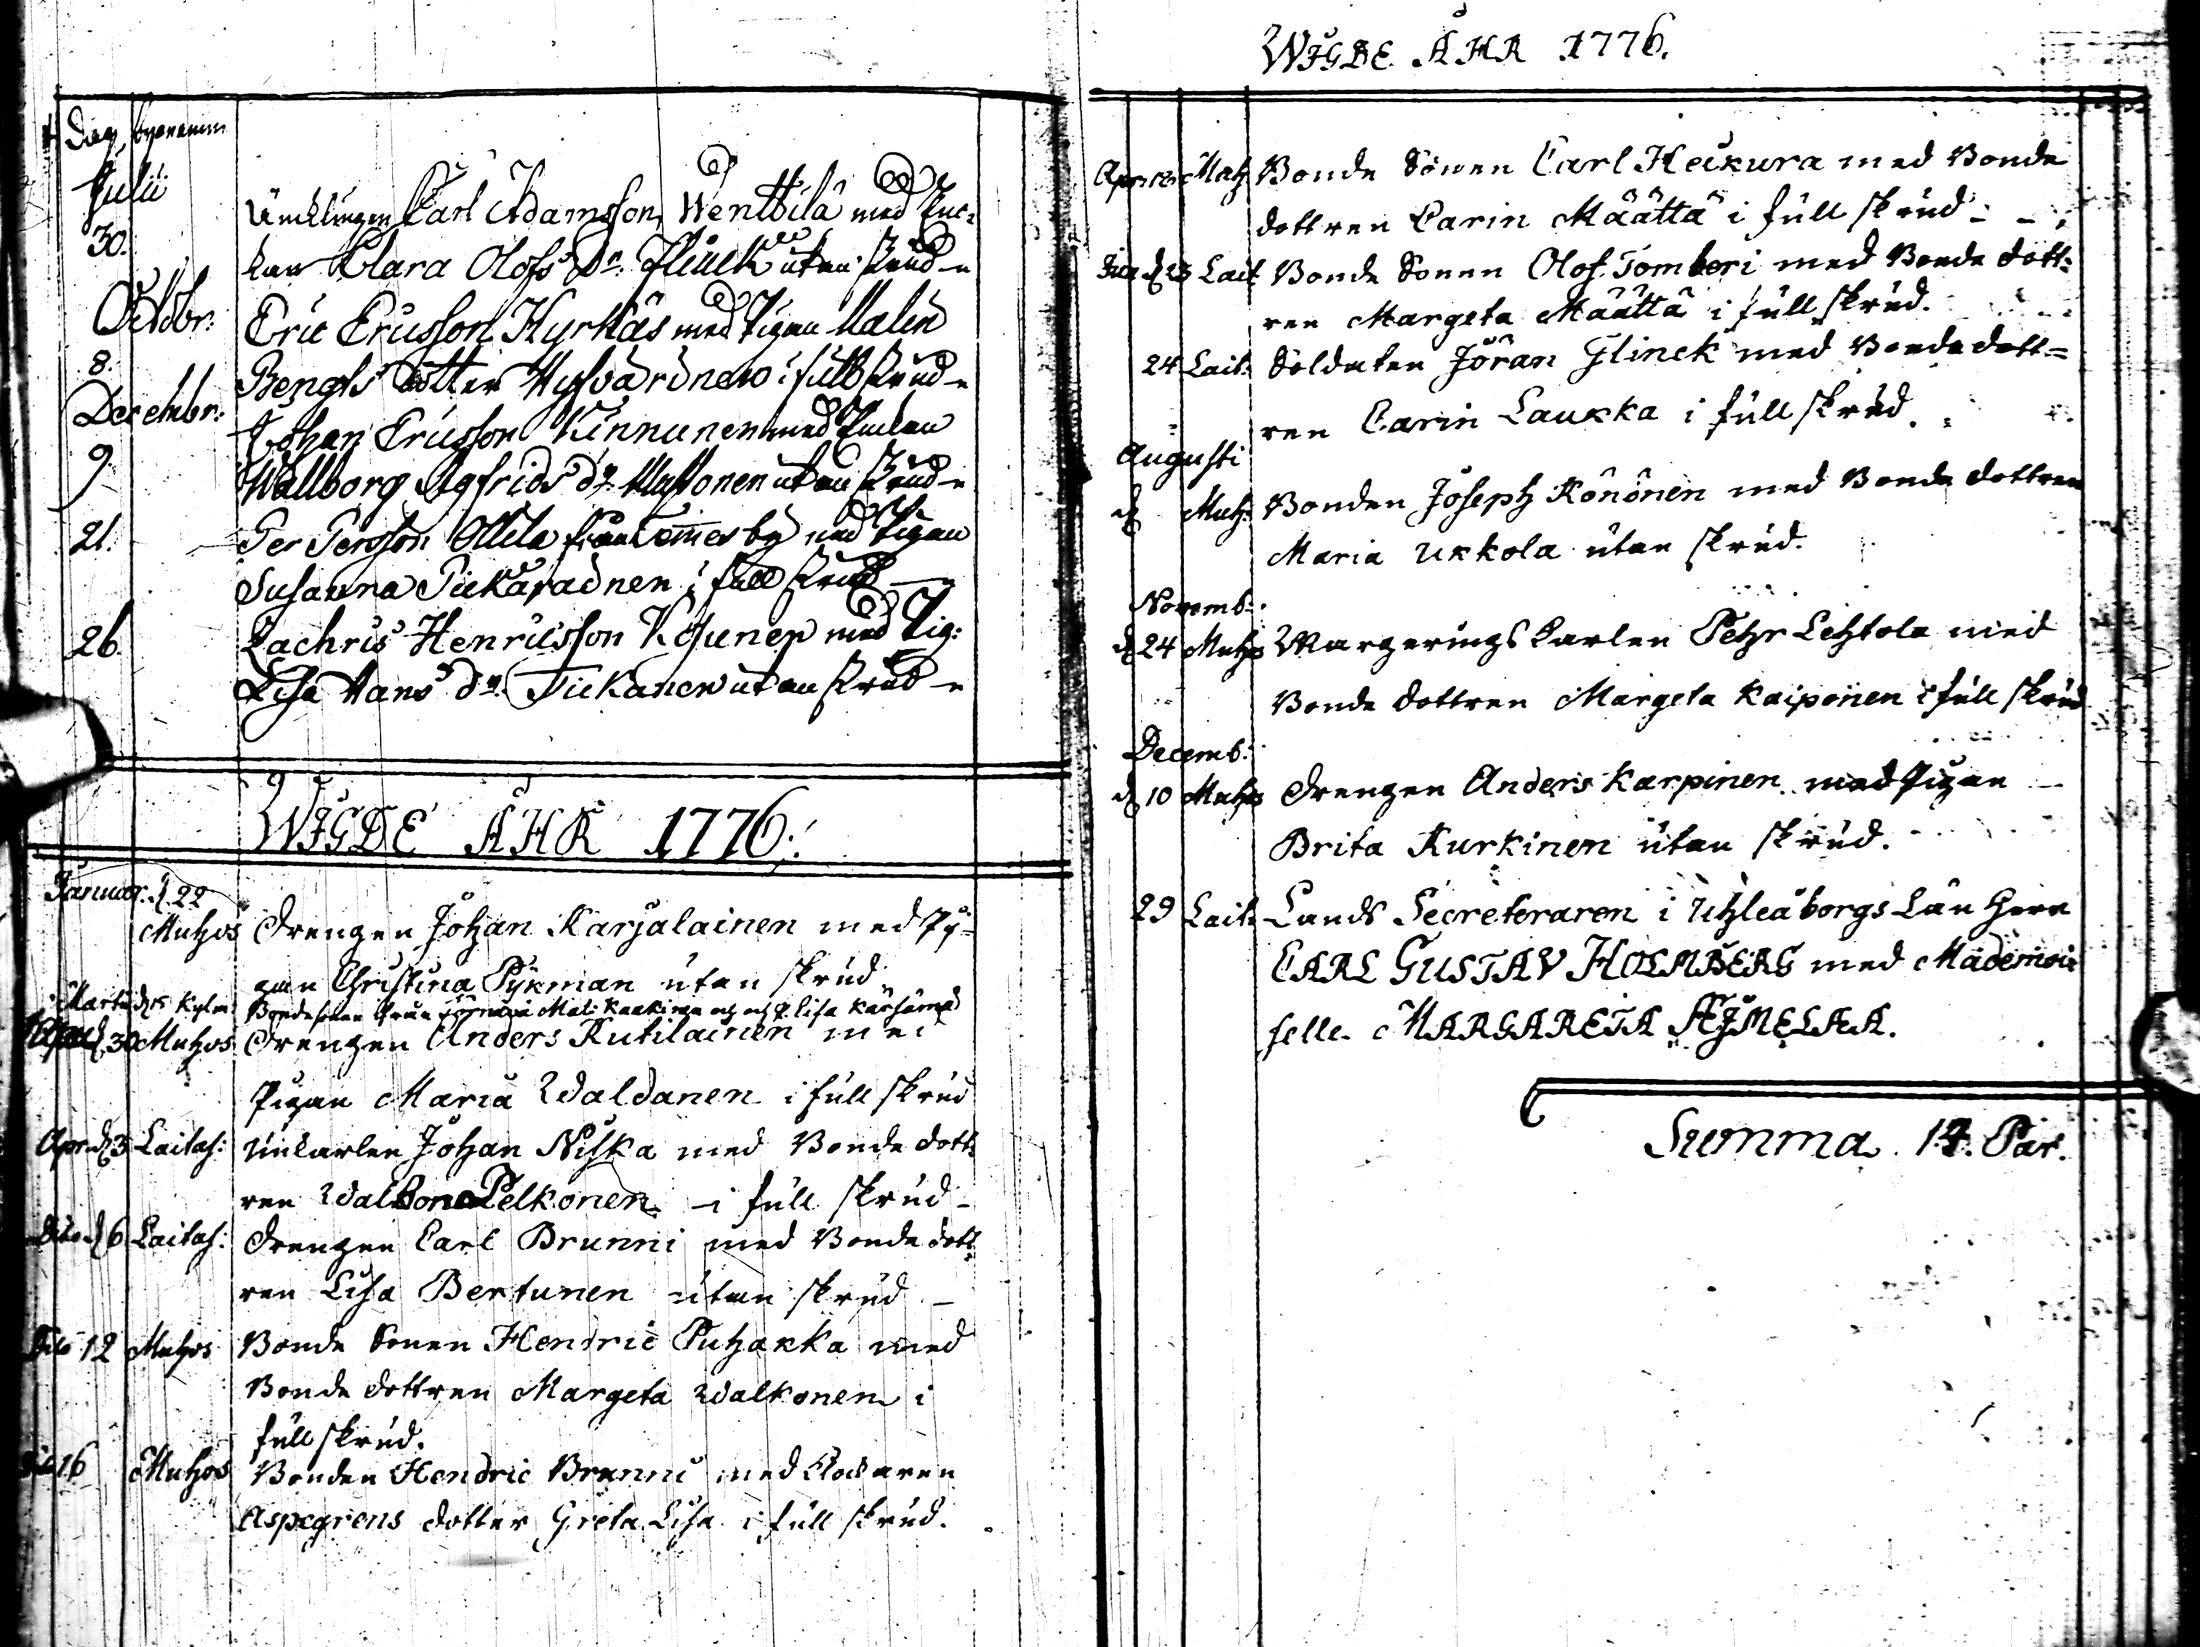 Dag, bynamn
Julii
30. Äncklingen Carl Adamsson Wenttilä med Enc-
kan Clara Olofs Dr. Fluck utan skrud
Octobr: Eric Ericsson Hyrkäs med Pigan Malin
8. Bengts dotter i full skrud
Decembr: Johan Ericsson Kinnunen med Enckan
9. Wallborg Sigfrids dr. utan skrud
21. Per Persson Ollila från by med Pigan
Susanna i full skrud
26. Zachris Henricsson med Pig:
Lisa Hans dr. Tickanen utan skrud
WIGDE ÅHR 1776:
Januar. d. 22
Muhos Drengen Johan Karjalainen med Pi-
gan Christina Pykman utan skrud
Martii d 15 Kylm: Bondesonen från Mat: Kaakinen och Lisa
d. 30 Muhos Drengen Anders Rutilainen med
Pigan Maria Waldanen i full skrud
Apr. d 3 Laitas: Enkarlen Johan Niska med Bonde dott-
ren Walbor Pelkonen i full skrud
Dito d 6 Laitas: Drengen Carl Brunni med Bonde dott-
ren Lisa Bertunen utan skrud
Dito 12 Muhos Bonde Sonen Hendric Puhakka med
Bonde dottren Margeta Walkonen i
full skrud.
Dito 16 Muhos Bonden Hendric Brunni med Clockaren
Aspegrens dotter Greta Lisa i full skrud.
WIGDE ÅHR 1776.
Apr: Muh: Bonde Sonen Carl Heikura med Bonde
dottren Carin Määttä i full skrud
d 23 Lait Bonde Sonen Olof Tomberi med Bonde dott-
ren Margeta Määttä i full skrud.
24 Lait: Soldaten Jöran Glinck med Bonde dott=
ren Carin Laukka i full skrud.
Augusti
d Muh: Bonden Joseph Könönen med Bonde dottren
Maria Ukkola utan skrud.
Novemb:
d 24 Muhos Wargeringskarlen Pehr Lehtola med
Bonde dottren Margeta Kaiponen i full skrud
Decemb:
d 10 Muhos Drengen Anders Karpinen med Pigan
Brita Kurkinen utan skrud.
29 Lait: Lands Secreteraren i Uhleåborgs Län Herr
CARL GUSTAV HOLMBERG med Mademoi-
selle MARGARETA ÆJMELÆA.
Summa. 14. Par.